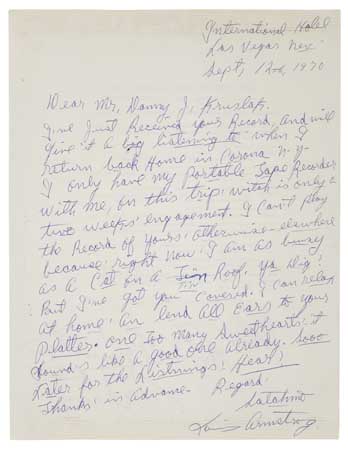 International Hotel
Las Vegas Nev.
Sept, 12th, 1970
Dear Mr, Danny J, Kruslak.
I've Just Received your Record, And will
give it a big listening to when I
return back Home in Corona N.Y.
I only have my Portable Tape Recorder
With me, on this trip: witch is only a
two weeks' engagement. I can't play
the Record of yours, otherwise - elsewhere
because right now I am as busy
as a Cat on a Tin Roof, Ya Dig?
But I've got you Covered. I can relax
at home. An lend All Ears to your
Platter. One Too Many Sweethearts: it
Sounds like a good one already. Sooo
Later for the Listnings' Hear?
Thanks' in Advance. Regard.
Satchmo
Louis Armstrong